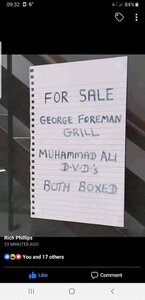 09:32 6°
54%
FOR SALE
GEORGE FOREMAN
GRILL
MUHAMMAD ALI
D.V.D's
BOTH BOXED
Rich Phillips
33 MINUTES AGO
You and 17 others
Like
Comment